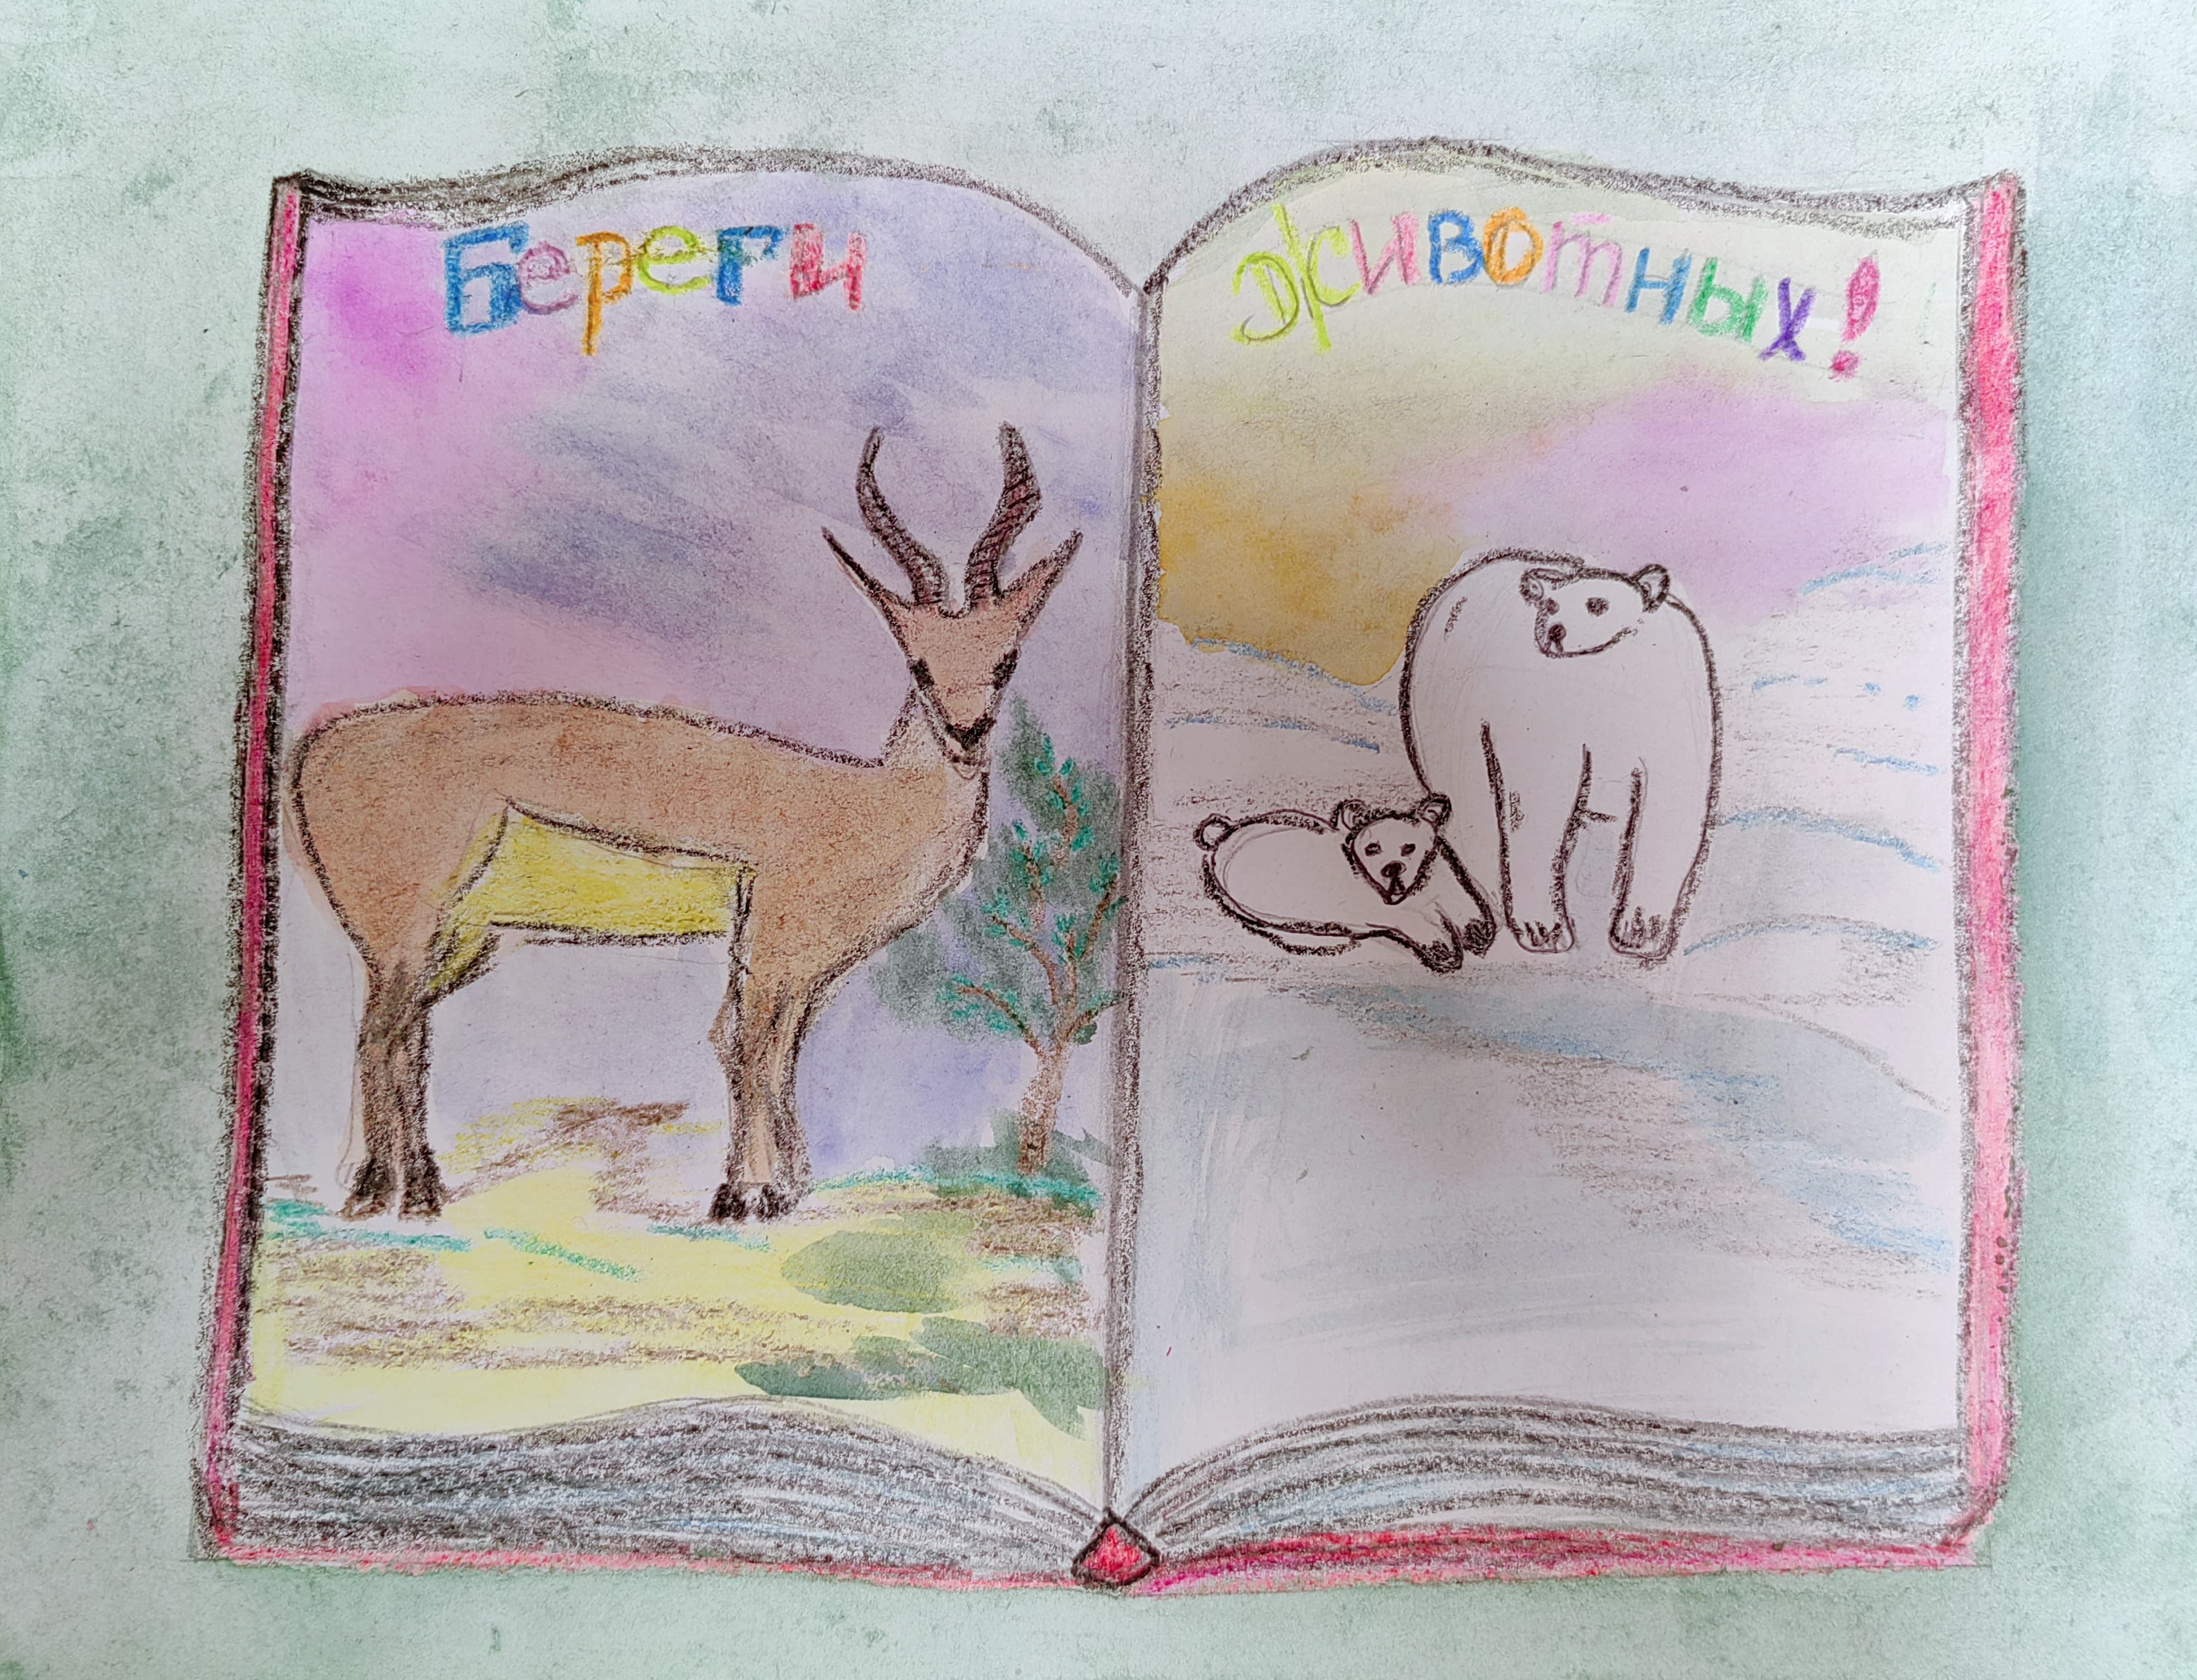 Береги
Животных!